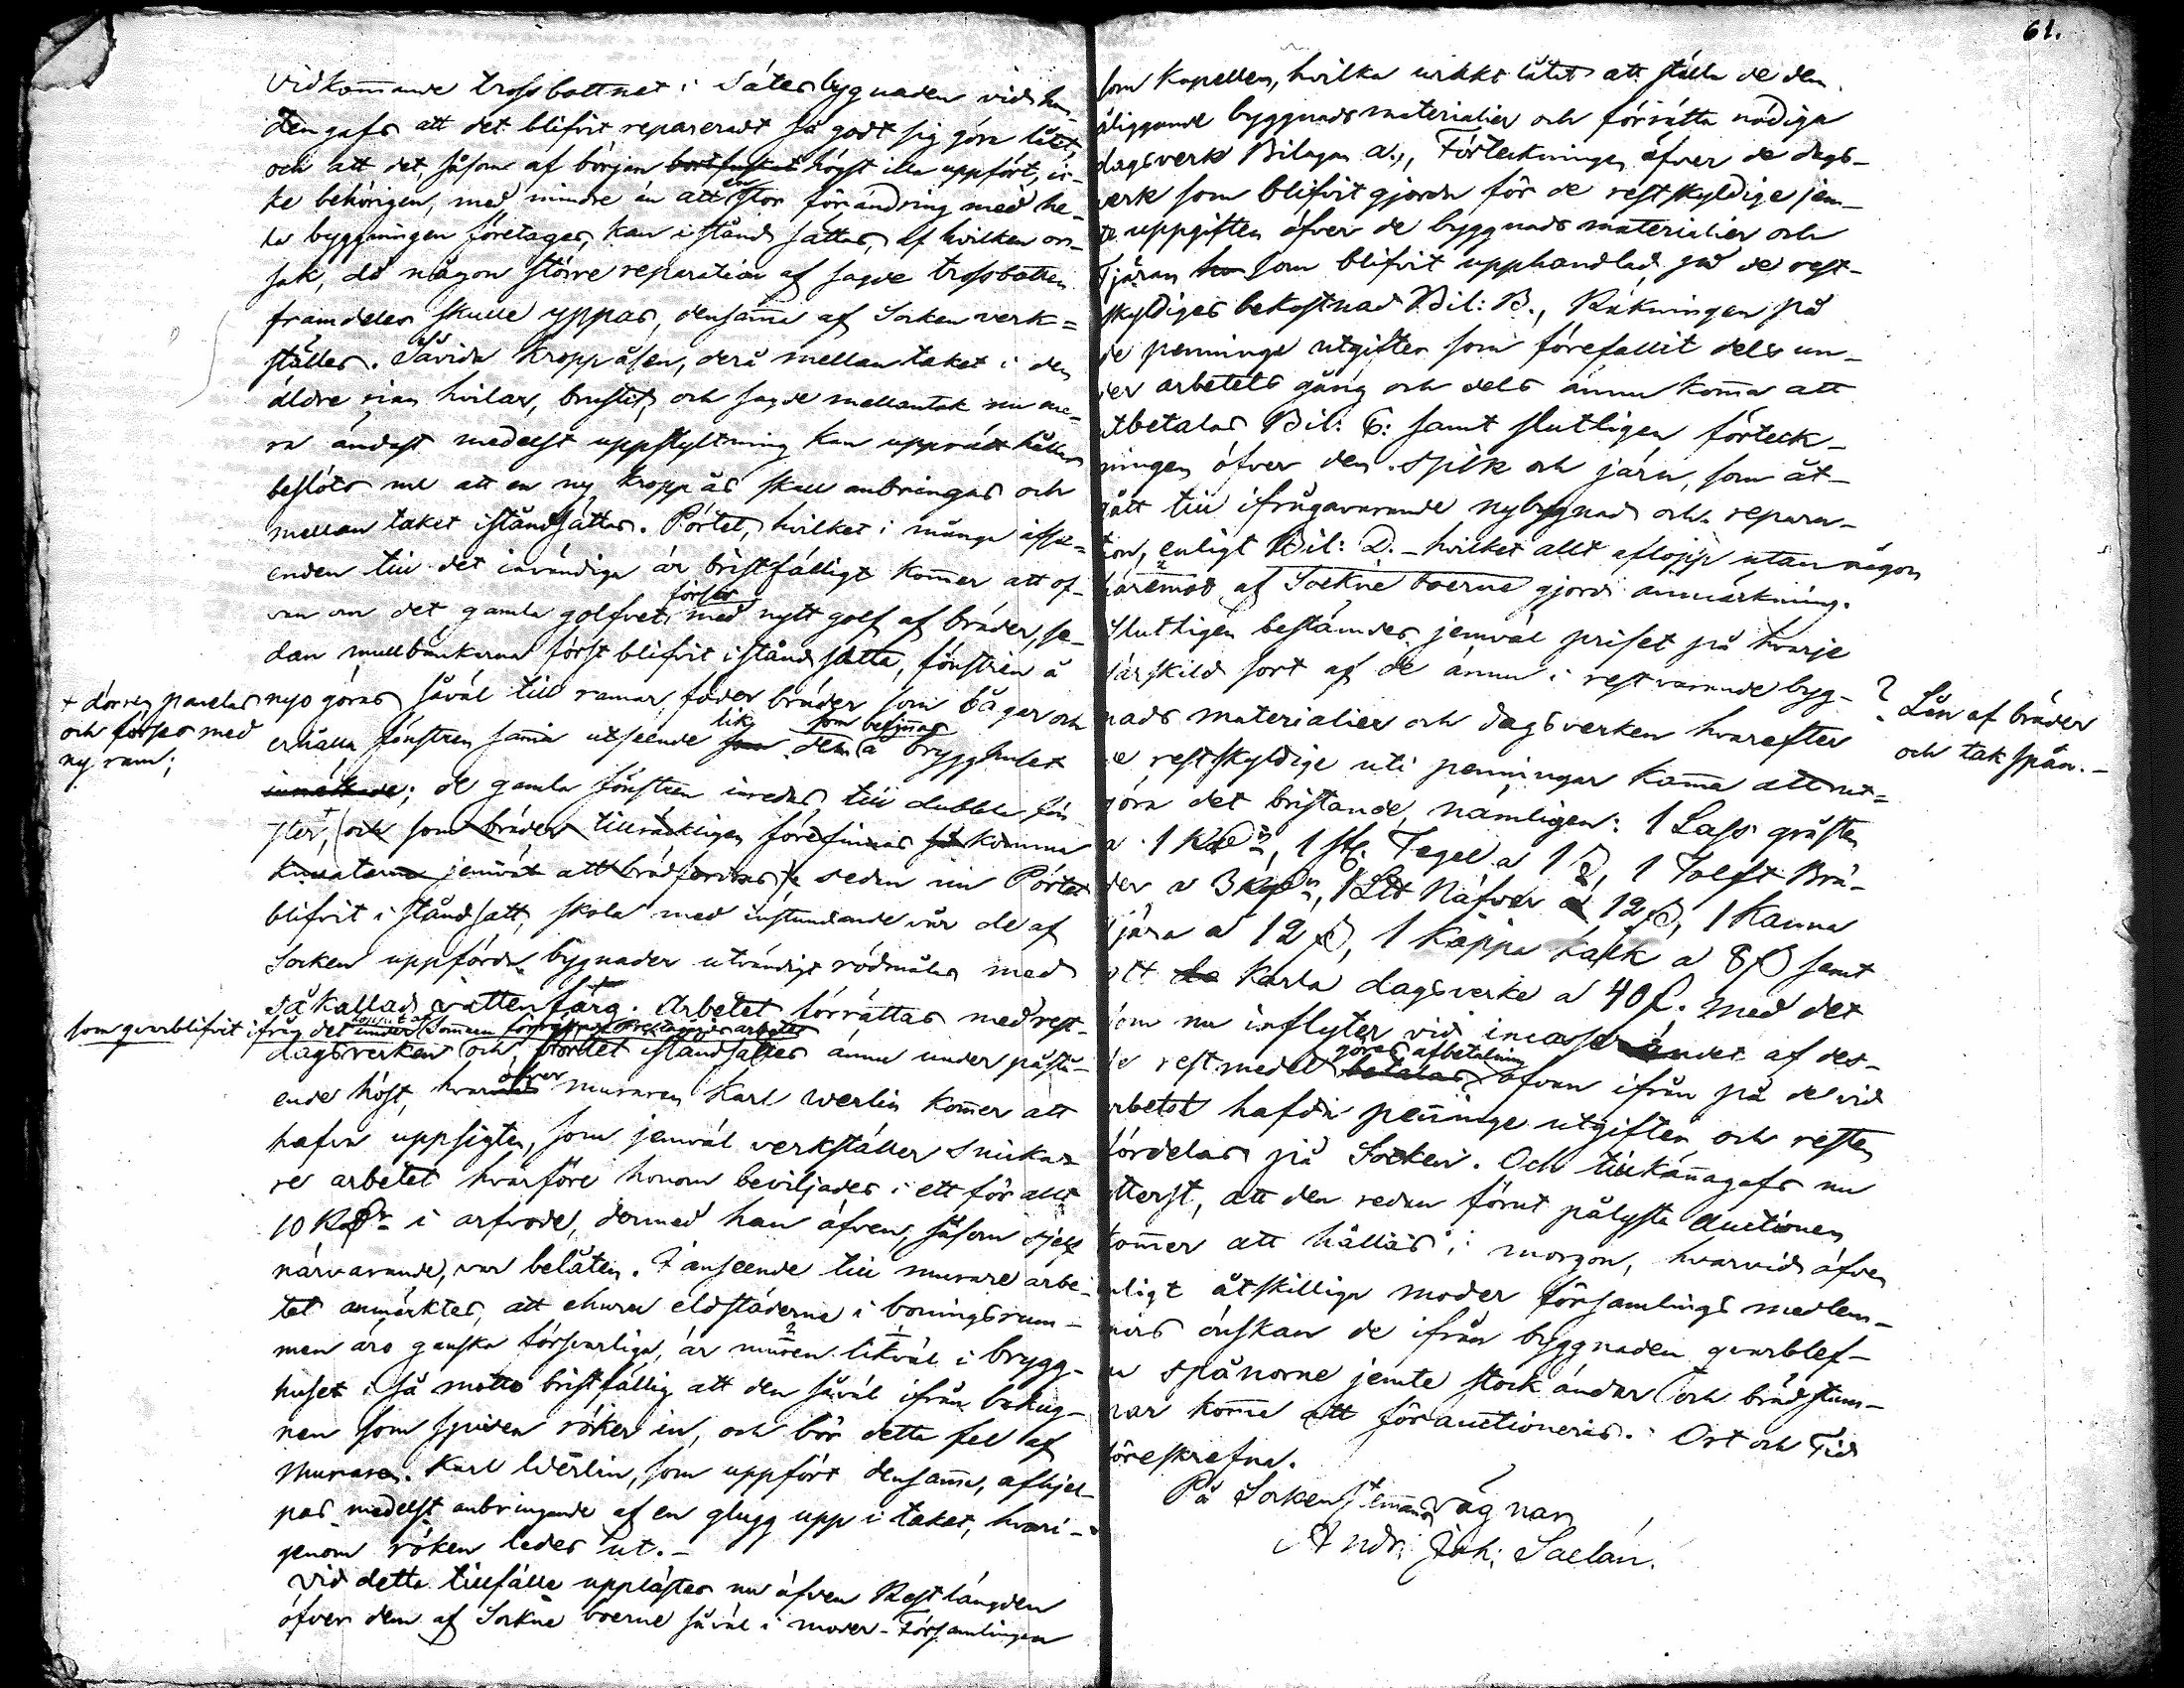 61.
Vidkommande trossbottnet i Sätesbygnaden vid
den gafs att det blifvit repareradt så godt sig göra låtet,
och att det, såsom af början bortfuskat högst illa uppfört, ic-
ke behörigen, med mindre än att en stor förändring med he-
la byggningen företages, kan i stånd sättas, af hvilken or-
sak, då någon större reparation af sagde trossbotten
framdeles skulle yppas, densamma af Socken verk=
ställes. Såvida kroppåsen, derå mellan taket i den
äldre rian hvilar, brustit, och sagde mellantak nu me-
ra ändast medelst uppstyltning kan upprätt hållas
beslöts nu att en ny kroppås skall anbringas och
mellan taket iståndsättas. Pörtet, hvilket i många afse=
enden till det invändiga är bristfälligt kommer att of-
van om det gamla golfvet förses med nytt golf af bräder, se-
dan mullbänkarna först blifvit i stånd satta, fönstren å
nyo göras såväl till ramar, foder bräder som bågar och
+ dörren panelas
och förses med
ny ram;
erhålla fönstren samma utseende som lika dem som befinnas å brygghuset
; de gamla fönstren inredas till dubbla fön
ster, och som bräder tillräckligen förefinnas så komma
knutarna jemväl att brädfordras, se sedan nu Pörtet
blifvit i ståndsatt, skola med instundande vår de af
Socken uppförda bygnader utvändigt rödmålas med
så kallad vattenfärg. Arbetet förrättas med rest-
som qvarblifvit ifråg det under loppet af Sommarn
dagsverken och Pörtet iståndsättes ännu under påstå-
ende höst, hvaröfver muraren Karl Werlin kommer att
hafva uppsigten, som jemväl verkställer Snicka=
re arbetet hvarföre honom beviljades i ett för allt
10 i arfvode, dermed han äfven, såsom sjelf
närvarande, var belåten. I anseende till murare arbe-
tet anmärktes, att ehuru eldstäderna i boningsrum-
men äro ganska försvarliga, är muren likväl i brygg-
huset i så motto bristfällig att den såväl ifrån bakug-
nen som spisen röker in, och bör detta fel af
Muraren Karl Werlin, som uppfört densamma, afhjel-
pas medelst anbringande af en glugg upp i taket, hvari-
genom röken ledes ut.-
Vid detta tillfälle upplästes nu äfven Restlängden
öfver dem af Sockne boerne såväl i moder-Församlingen
som Kapellen, hvilka urakt låtit att ställa de dem
åliggande byggnadsmaterialier och förrätta nödiga
dagsverk Bilagan a., Förteckningen öfver de dags-
verk som blifvit gjorda för de restskyldige jem-
te uppgiften öfver de byggnads materialier och
Tjäran som blifvit upphandlad på de rest-
skyldiges bekostnad Bil: B., Räkningen på
de penninge utgifter som förefallit dels un-
der arbetets gång och dels ännu komma att
utbetalas Bil: C: samt slutligen förteck-
ningen öfver den spik och järn, som åt-
gått till ifrågavarande nybygnad och repara-
tion, enligt Bil: D. - hvilket allt aflopp utan någon
häremot af Sockne boerne gjord anmärkning.
Slutligen bestämdes jemväl priset på hvarje
särskild sort af de ännu i rest varande byg-
nads materialier och dagsverken hvarefter
? Lån af bräder
och tak spån.-
de restskyldige uti penningar komma att ut=
göra det bristande, nämligen: 1 Lass gråsten
a 1, 1 st. Tegel a 1, 1 Tolft Brä-
der a 3, 1 Näfver a 12, 1 Kanna
Tjära a 12, 1 Kappa kalk a 8 samt
ett karla dagsverke a 40. Med det
som nu inflyter vid incasserandet af des-
se restmedel betalas göres afbetalning ofvan ifrån på de vid
arbetet hafda penninge utgiften och resten
fördelas på Socken. Och tillkännagafs nu
ytterst, att den redan förut pålysta auctionen
kommer att hållas i morgon, hvarvid äfven
enligt åtskillige moder församlings medlem-
mars önskan de ifrån byggnaden qvarblef-
na spånorne jemte stock ändar och brädstum-
par komma att förauctioneras. Ort och Tid
föreskrefna.
På Sockenstemmans vägnar
Andr: Joh: Saelan.